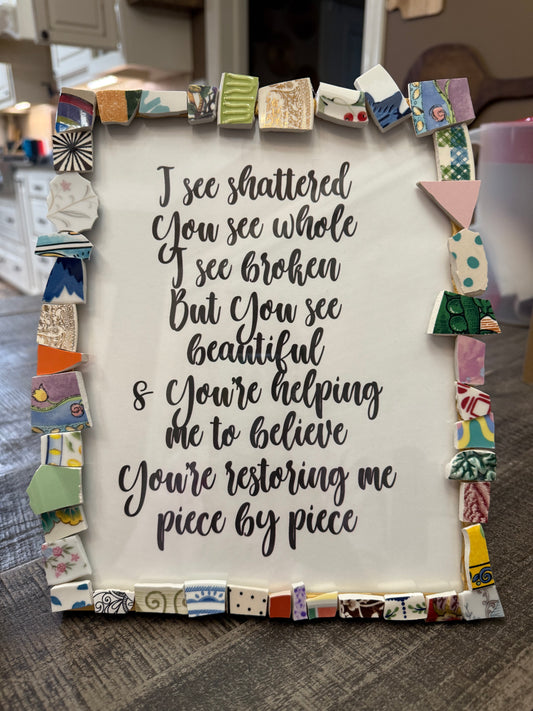 I see shattered
You see whole
I see broken
But You see
beautiful
& You're helping
me to believe
You're restoring me
piece by piece